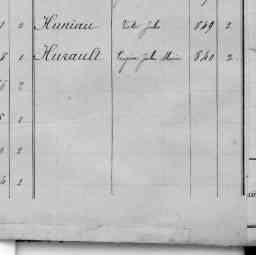 1 0 Huniau Victor Jules 849 2
8 0 Hurault Eugène Jules Marie 840 2
2
0
0 2
4 2